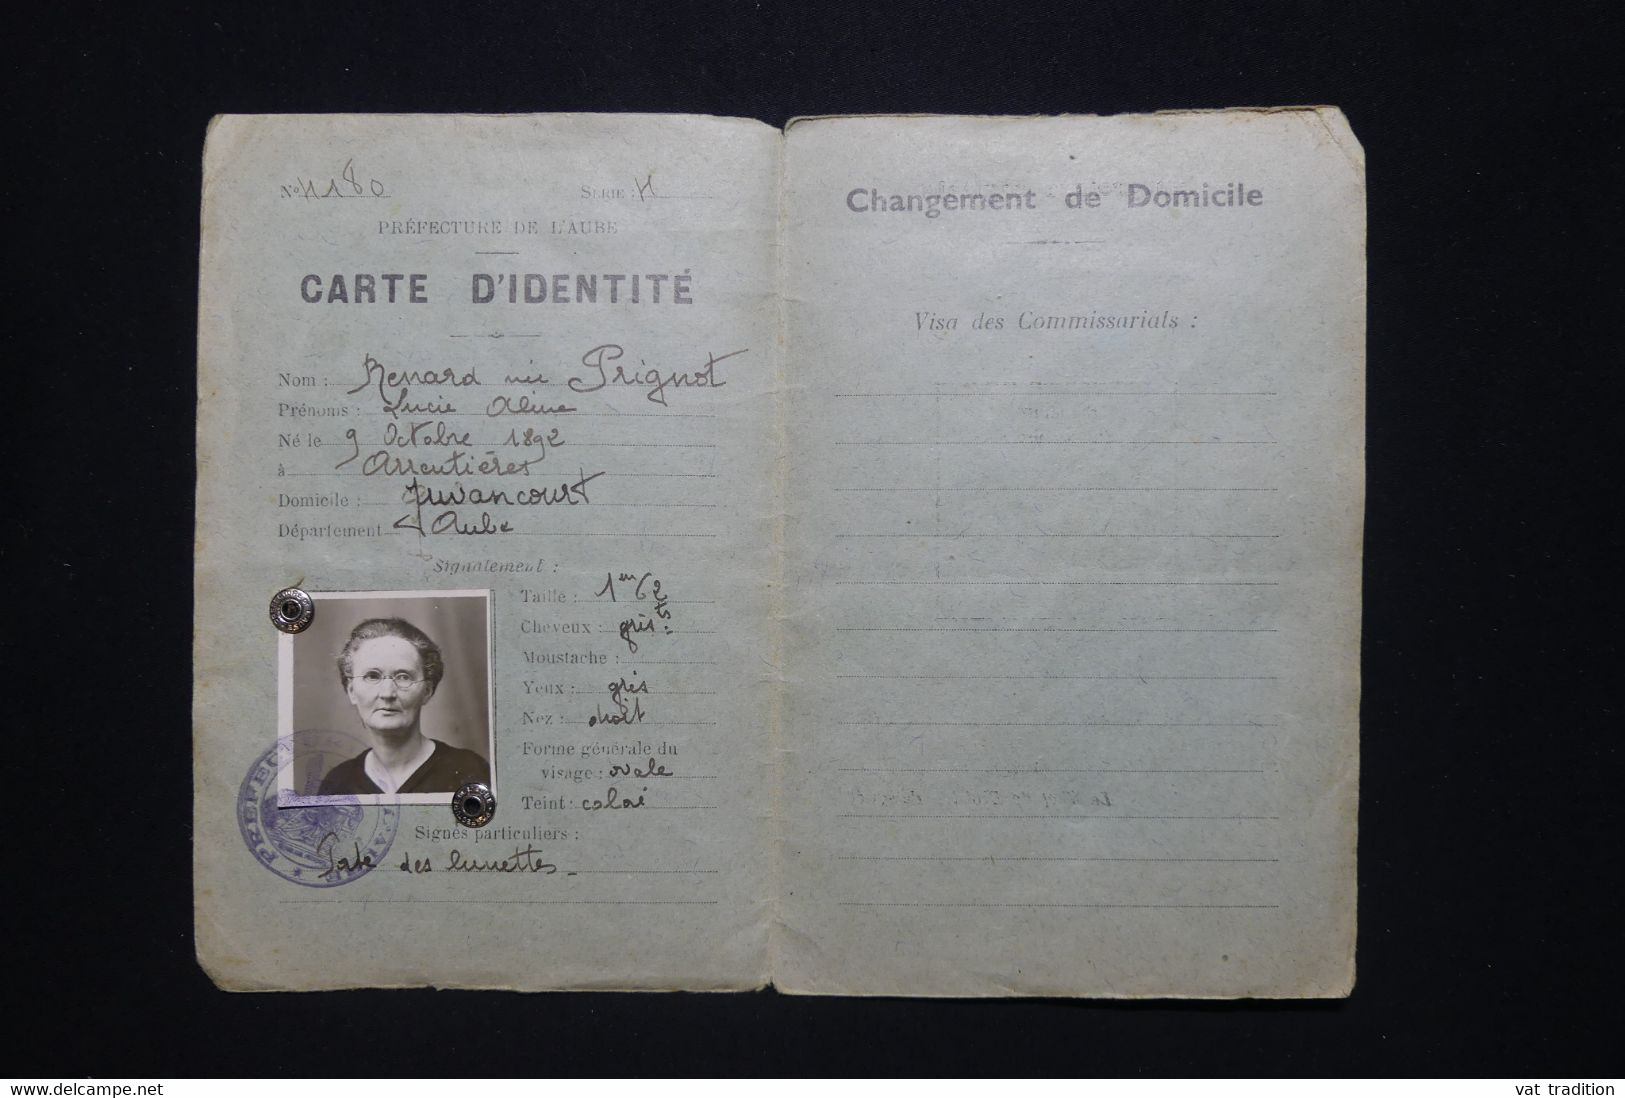 Nº 4180 SÉRIE : H
PRÉFECTURE DE L'AUBE
CARTE D'IDENTITÉ
Nom : Renard née Prignot
Prénoms : Lucie Aline
Né le 9 Octobre 1892
à Arrentières
Domicile : Juvancourt
Département Aube
Signalement :
Taille : 1m62
Cheveux : gris
Moustache :
Yeux : gris
Nez : droit
Forme générale du
visage : ovale
Teint : coloré
Signes particuliers :
Porte des lunettes
PRÉFECTURE L'AUBE
Changement de Domicile
Visa des Commissariats :
www.delcampe.net
vat tradition